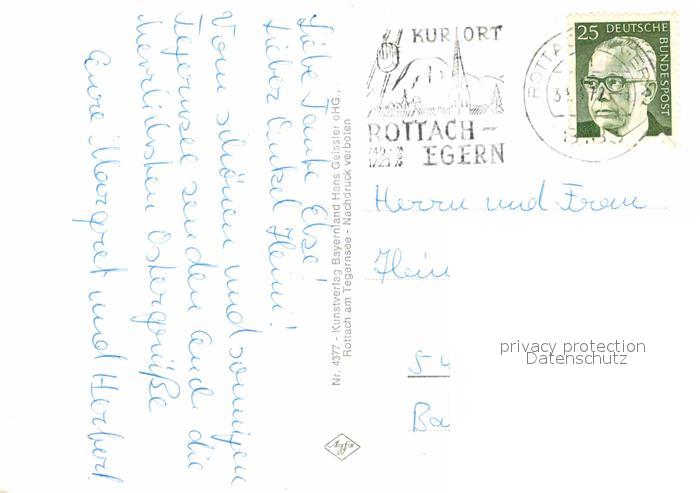 Liebe Tante Else!
Lieber Onkel Heini!
Vom schönen und sonnigen
Tegernsee senden Euch die
herzlichsten Ostergrüße
Eure Margret und Herbert
Nr. 4377 - Kunstverlag Bayernland Hans Geissler oHG.,
Rottach am Tegernsee - Nachdruck verboten
Agfa
KURORT
ROTTACH-
EGERN
25 DEUTSCHE BUNDESPOST
ROTTACH-EGERN
Herrn und Frau
Hein
54
Ba
privacy protection
Datenschutz